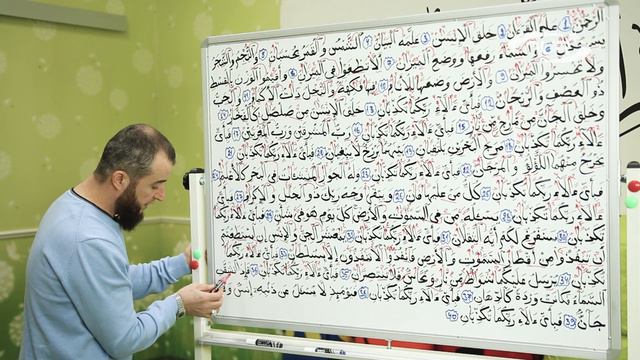 الرَّحْمَٰنُ 1 عَلَّمَ الْقُرْءَانَ 2 خَلَقَ الْإِنسَٰنَ 3 عَلَّمَهُ الْبَيَانَ 4 الشَّمْسُ وَالْقَمَرُ بِحُسْبَانٍ 5 وَالنَّجْمُ وَالشَّجَرُ
يَسْجُدَانِ 6 وَالسَّمَاءَ رَفَعَهَا وَوَضَعَ الْمِيزَانَ 7 أَلَّا تَطْغَوْا فِي الْمِيزَانِ 8 وَأَقِيمُوا الْوَزْنَ بِالْقِسْطِ
وَلَا تُخْسِرُوا الْمِيزَانَ 9 وَالْأَرْضَ وَضَعَهَا لِلْأَنَامِ 10 فِيهَا فَٰكِهَةٌ وَالنَّخْلُ ذَاتُ الْأَكْمَامِ 11 وَالْحَبُّ
ذُو الْعَصْفِ وَالرَّيْحَانُ 12 فَبِأَيِّ ءَالَاءِ رَبِّكُمَا تُكَذِّبَانِ 13 خَلَقَ الْإِنسَٰنَ مِن صَلْصَٰلٍ كَالْفَخَّارِ 14
وَخَلَقَ الْجَانَّ مِن مَّارِجٍ مِّن نَّارٍ 15 فَبِأَيِّ ءَالَاءِ رَبِّكُمَا تُكَذِّبَانِ 16 رَبُّ الْمَشْرِقَيْنِ وَرَبُّ الْمَغْرِبَيْنِ 17 فَبِأَيِّ
ءَالَاءِ رَبِّكُمَا تُكَذِّبَانِ 18 مَرَجَ الْبَحْرَيْنِ يَلْتَقِيَانِ 19 بَيْنَهُمَا بَرْزَخٌ لَّا يَبْغِيَانِ 20 فَبِأَيِّ ءَالَاءِ رَبِّكُمَا تُكَذِّبَانِ 21
يَخْرُجُ مِنْهُمَا اللُّؤْلُؤُ وَالْمَرْجَانُ 22 فَبِأَيِّ ءَالَاءِ رَبِّكُمَا تُكَذِّبَانِ 23 وَلَهُ الْجَوَارِ الْمُنشَئَاتُ فِي الْبَحْرِ كَالْأَعْلَٰمِ 24
فَبِأَيِّ ءَالَاءِ رَبِّكُمَا تُكَذِّبَانِ 25 كُلُّ مَنْ عَلَيْهَا فَانٍ 26 وَيَبْقَىٰ وَجْهُ رَبِّكَ ذُو الْجَلَٰلِ وَالْإِكْرَامِ 27 فَبِأَيِّ
ءَالَاءِ رَبِّكُمَا تُكَذِّبَانِ 28 يَسْئَلُهُ مَن فِي السَّمَٰوَٰتِ وَالْأَرْضِ كُلَّ يَوْمٍ هُوَ فِي شَأْنٍ 29 فَبِأَيِّ ءَالَاءِ رَبِّكُمَا
تُكَذِّبَانِ 30 سَنَفْرُغُ لَكُمْ أَيُّهَ الثَّقَلَانِ 31 فَبِأَيِّ ءَالَاءِ رَبِّكُمَا تُكَذِّبَانِ 32 يَٰمَعْشَرَ الْجِنِّ وَالْإِنسِ إِنِ اسْتَطَعْتُمْ
أَن تَنفُذُوا مِنْ أَقْطَارِ السَّمَٰوَٰتِ وَالْأَرْضِ فَانفُذُوا لَا تَنفُذُونَ إِلَّا بِسُلْطَٰنٍ 33 فَبِأَيِّ ءَالَاءِ رَبِّكُمَا
تُكَذِّبَانِ 34 يُرْسَلُ عَلَيْكُمَا شُوَاظٌ مِّن نَّارٍ وَنُحَاسٌ فَلَا تَنتَصِرَانِ 35 فَبِأَيِّ ءَالَاءِ رَبِّكُمَا تُكَذِّبَانِ 36 فَإِذَا انشَقَّتِ
السَّمَاءُ فَكَانَتْ وَرْدَةً كَالدِّهَانِ 37 فَبِأَيِّ ءَالَاءِ رَبِّكُمَا تُكَذِّبَانِ 38 فَيَوْمَئِذٍ لَّا يُسْئَلُ عَن ذَنبِهِ إِنسٌ وَلَا
جَانٌّ 39 فَبِأَيِّ ءَالَاءِ رَبِّكُمَا تُكَذِّبَانِ 40